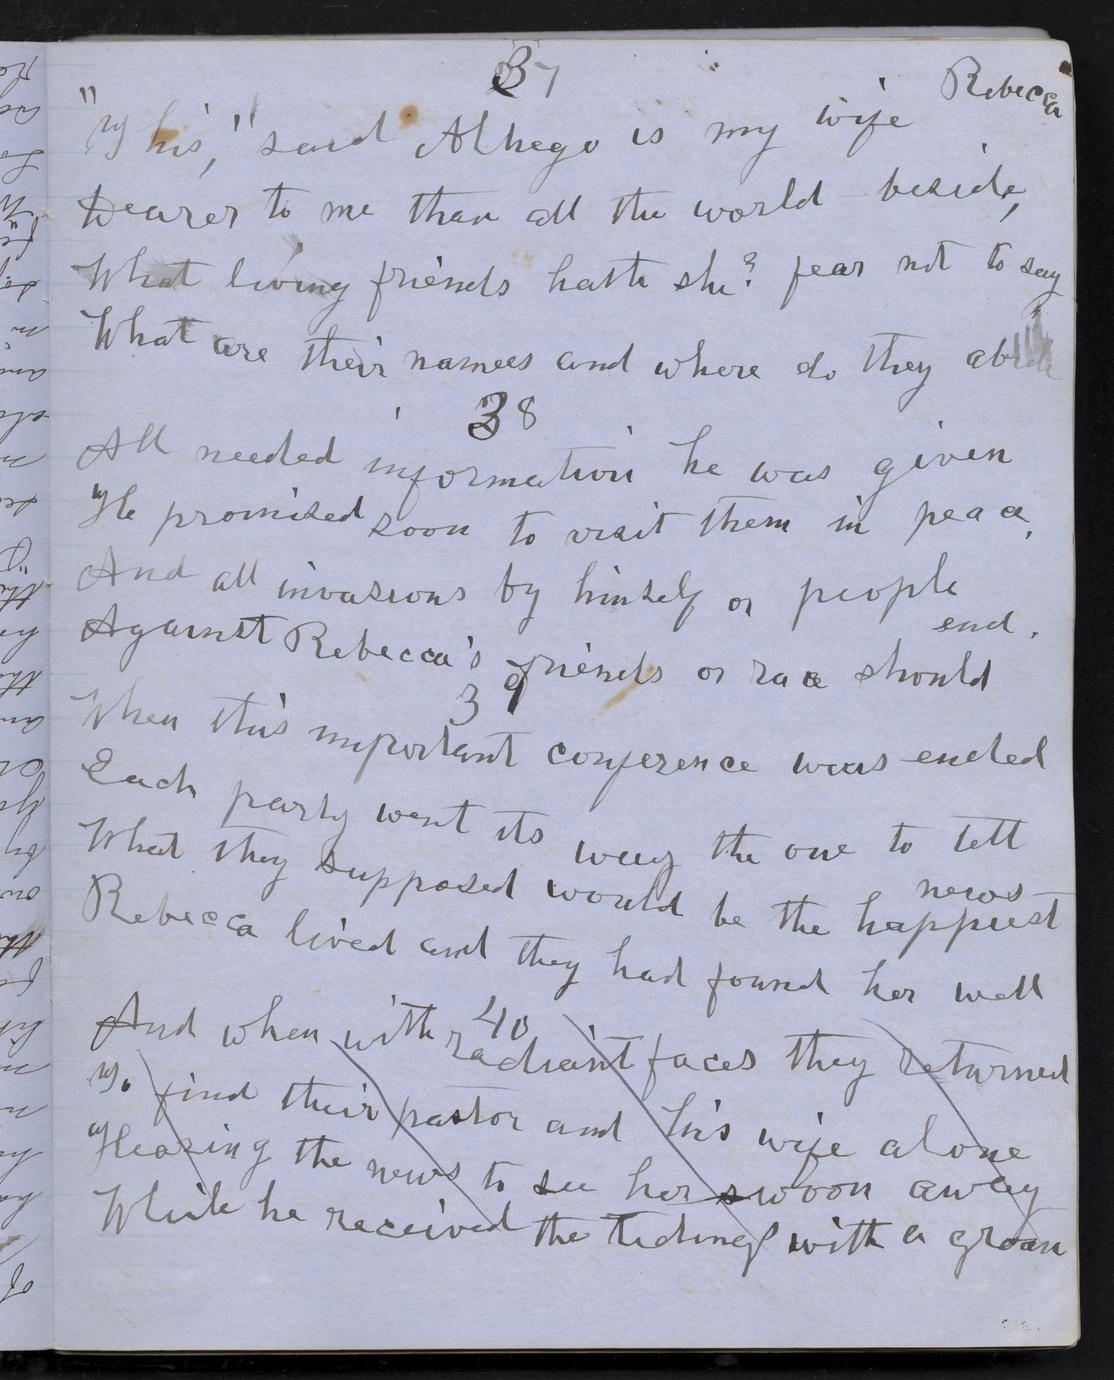 37
Rebecca
"This," said Alhego is my wife
Dearer to me than all the world beside,
What living friends hath she? fear not to say
What are their names and where do they abide
38
All needed information he was given
He promised soon to visit them in peace,
And all invasions by himself or people
end.
Against Rebecca's friends or race should
39
When this important conference was ended
Each party went its way the one to tell
What they supposed would be the happiest
news
Rebecca lived and they had found her well
40
And when with radiant faces they returned
To find their pastor and his wife alone
Hearing the news to see her swoon away
While he received the tidings with a groan